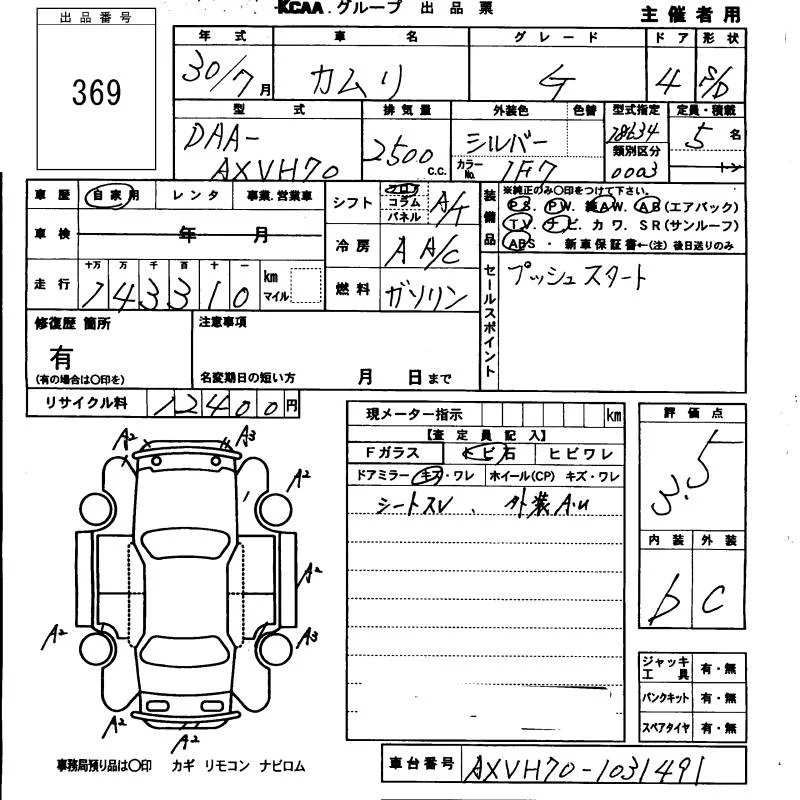 KCAA.グループ 出品票
主催者用
出品番号
369
年式 車名 グレード ドア 形状
30/7月 カムリ G 4 S/D
型式 排気量 外装色 色替 型式指定 定員・積載
DAA-AXVH70 2500c.c. シルバー 18634 5名
カラーNo. 1F7 類別区分 0003 トン
車歴 自家用 レンタ 事業.営業車
車検 年 月
走行 十万 万 千 百 十 一 km マイル
143310
シフト フロア コラム パネル A/T
冷房 A A/C
燃料 ガソリン
装備品 ※純正のみ〇印をつけて下さい。
PS. PW. 純AW. AB(エアバック)
TV. ナビ. カワ. SR(サンルーフ)
ABS ・ 新車保証書←(注)後日送りのみ
セールスポイント
プッシュスタート
修復歴 箇所
有
(有の場合は〇印を)
注意事項
名変期日の短い方 月 日まで
リサイクル料 12400円
現メーター指示 km
【査定員記入】
Fガラス トビ石 ヒビワレ
ドアミラー キズ・ワレ ホイール(CP) キズ・ワレ
シートスレ、外装A.U
評価点
3.5
内装 外装
b C
A2 A3
A2 A2
A2
A2 A3
A2
A2
ジャッキ工具 有・無
パンクキット 有・無
スペアタイヤ 有・無
事務局預り品は〇印 カギ リモコン ナビロム
車台番号 AXVH70-1031491